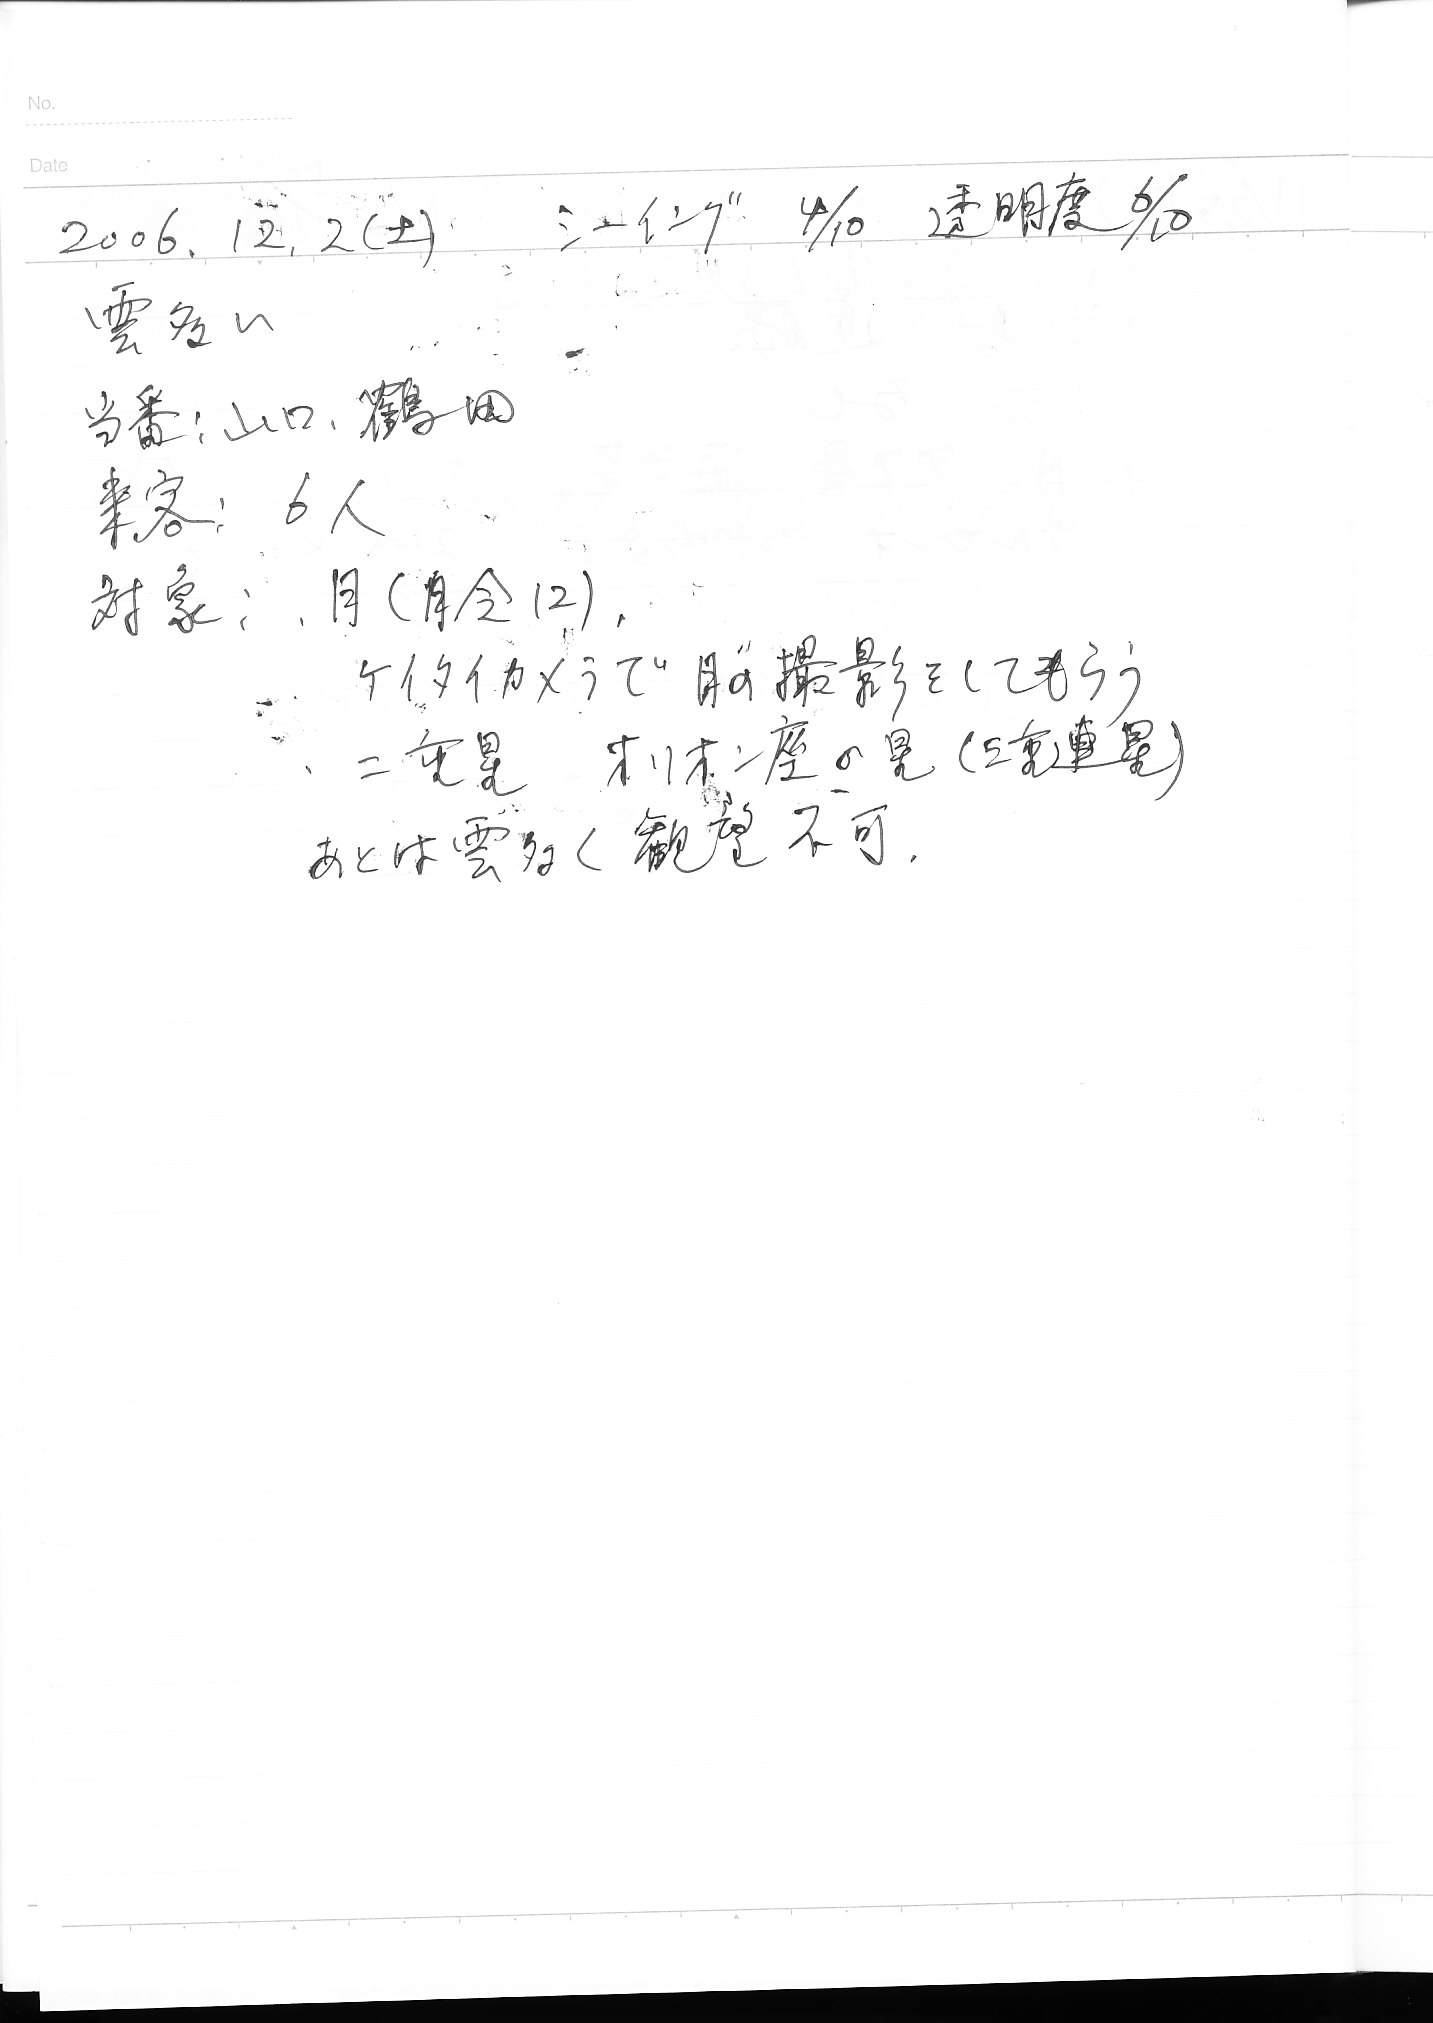 No.
Date
2006.12.2(土) シーイング 4/10 透明度 6/10
雲多い
当番:山口、鶴田
来客: 6人
対象:、月(月令12)、
ケイタイカメラで月の撮影をしてもらう
、二重星 オリオン座σ星(5重連星)
あとは雲多く観望不可.